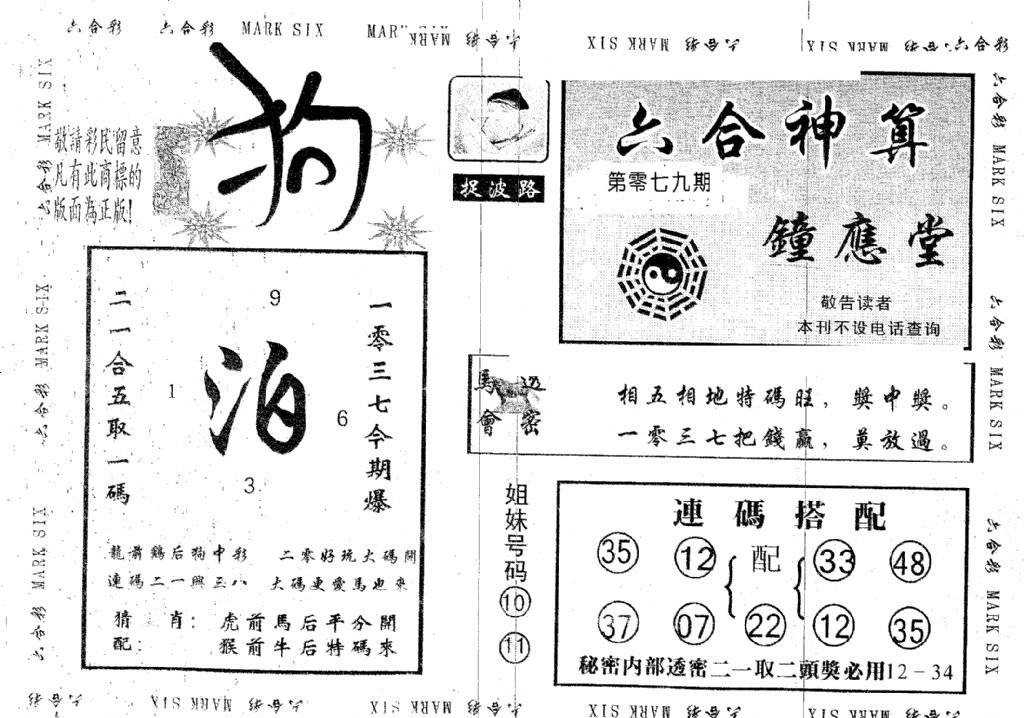 六合彩 六合彩 MARK SIX MARK SIX 六合彩 MARK SIX 六合彩 MARK SIX 六合彩
六合彩 MARK SIX 六合彩 MARK SIX 六合彩 MARK SIX
敬請彩民留意
凡有此商標的
版面為正版!
狗
捉波路
六合神算
第零七九期
鐘應堂
敬告读者
本刊不设电话查询
二一合五取一碼
9
1
泊
6
3
一零三七今期爆
龍前鷄后狗中彩 二零好玩大碼開
連碼二一興三八 大碼更愛馬也來
猜肖: 虎前馬后平分開
配: 猴前牛后特碼來
馬會
透密
相五相地特碼旺，獎中獎。
一零三七把錢贏，莫放過。
姐妹号码
10
11
連碼搭配
35 12 配 33 48
37 07 22 12 35
秘密内部透密二一取二頭獎必用12-34
六合彩 MARK SIX 六合彩 MARK SIX 六合彩 MARK SIX
六合彩 MARK SIX 六合彩 MARK SIX 六合彩 MARK SIX 六合彩 MARK SIX 六合彩